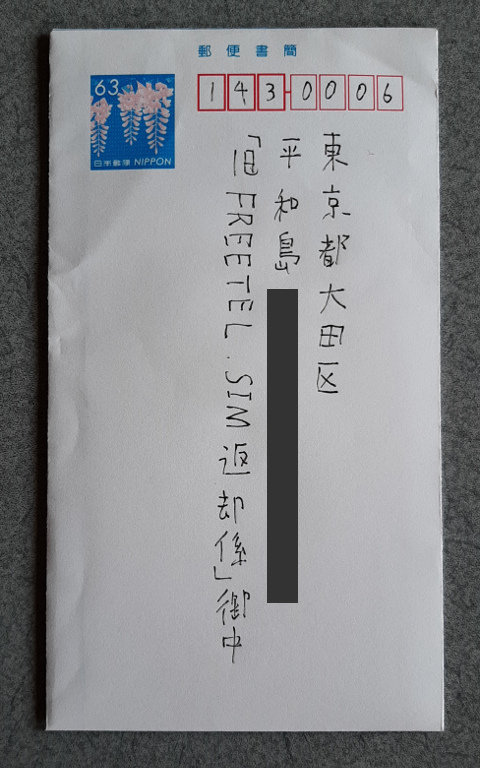 郵便書簡
63
日本郵便 NIPPON
143-0006
東京都大田区
平和島
「旧FREETEL.SIM返却係」御中